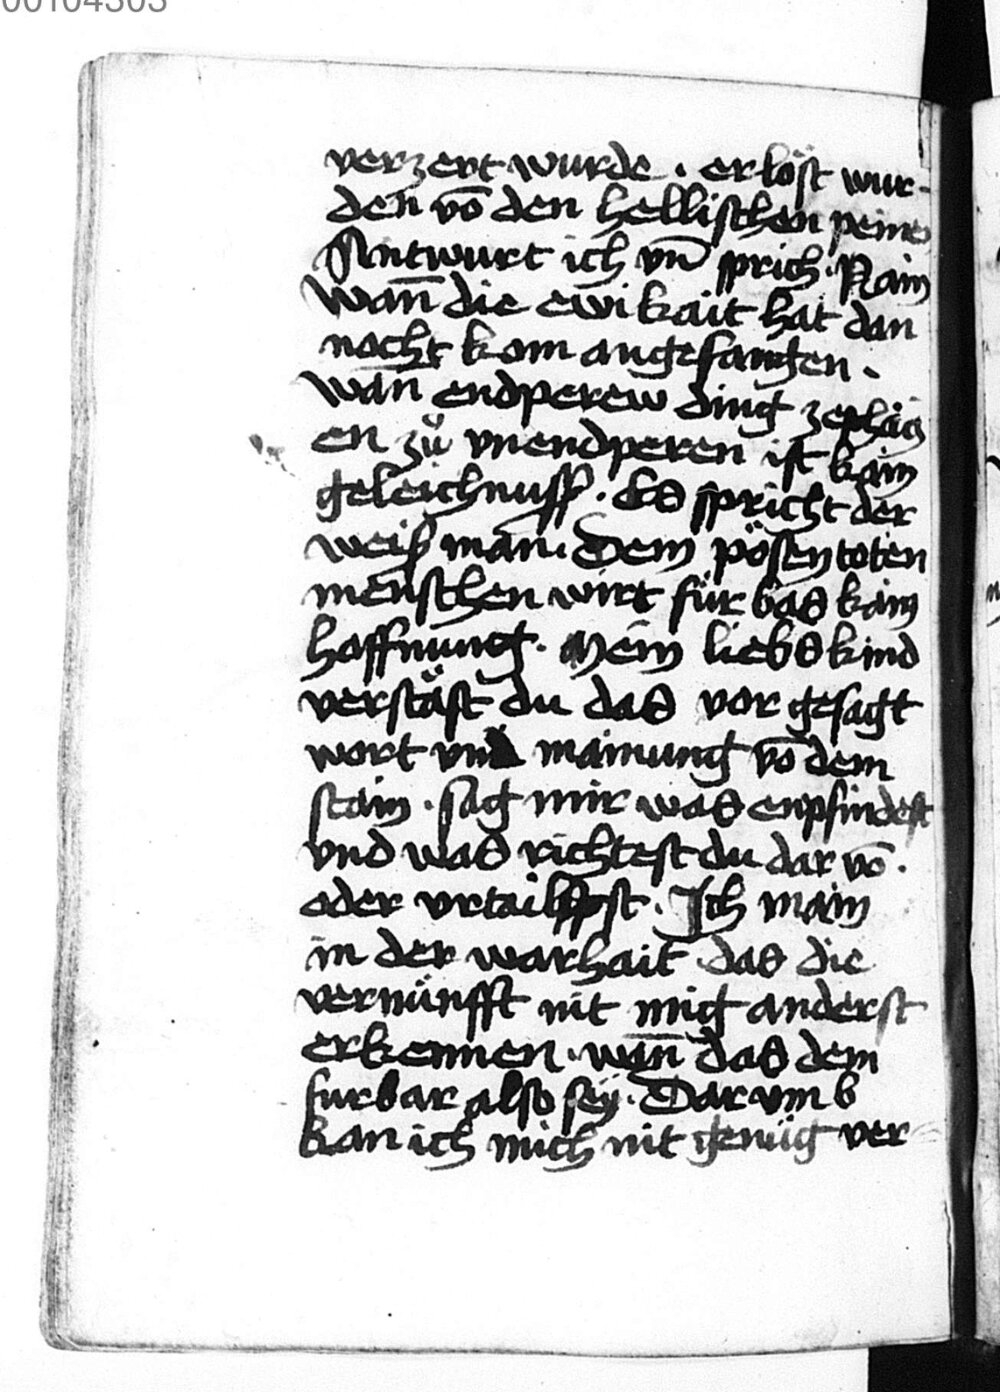 00104303
verzert wurde . erlöst wur-
den vō den hellischen peinen
Antwurt ich vn̄ sprich . Nain
Wan̄ die ewikait hat dan
nocht kom angefangen .
Wan̄ endperew ding
en zů vnendperen ist kain
geleichnuss . Es spricht der
weiß man . Dem pösen toten
menschen wirt für bas kain
hoffnung . Mein liebs kind
verstäst du das vor gesagt
wort vnd mainung vō dem
stain . sag mir was enpfindest
vnd was richtest du dar vō .
oder vrtailst . Ich main
in der warhait das die
vernünfft nit mig anderst
erkennen . wan̄ das dem
furbar also sey . Dar vmb
kan ich mich nit genüg ver